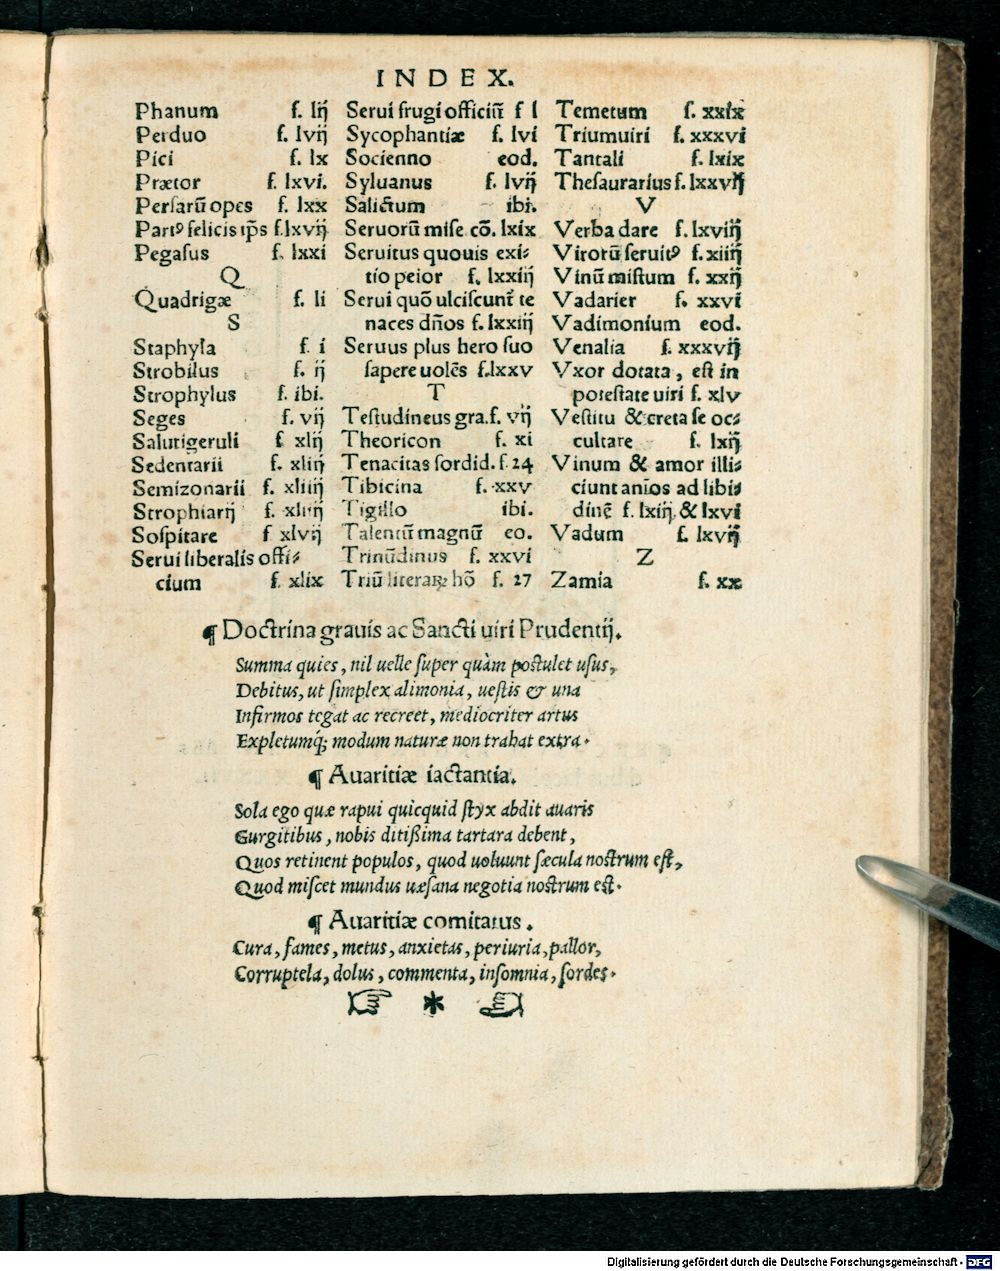 INDEX.
Phanum f. lij
Perduo f. lvij
Pici f. lx
Prætor f. lxvi.
Persarũ opes f. lxx
Partꝰ felicis ip̃s f.lxvij
Pegasus f. lxxi
Q
Quadrigæ f. li
S
Staphyla f. i
Strobilus f. ij
Strophylus f. ibi.
Seges f. vij
Salutigeruli f. xlij
Sedentarii f. xliij
Semizonarii f. xliiij
Strophiarij f. xliiij
Sospitare f xlvij
Serui liberalis offi⸗
cium f. xlix
Serui frugi officiũ f l
Sycophantiæ f. lvi
Socienno eod.
Syluanus f. lvij
Salictum ibi.
Seruorũ mise cõ. lxix
Seruitus quouis exi⸗
tio peior f. lxxiij
Serui quõ ulciscunt̃ te
naces dños f. lxxiij
Seruus plus hero suo
sapere uolẽs f.lxxv
T
Testudineus gra.f. vij
Theoricon f. xi
Tenacitas sordid. f. 24
Tibicina f. xxv
Tigillo ibi.
Talentũ magnũ eo.
Trinũdinus f. xxvi
Triũ literaꝝ hõ f. 27
Temetum f. xxix
Triumuiri f. xxxvi
Tantali f. lxix
Thesaurarius f. lxxvij
V
Verba dare f. lxviij
Virorũ seruitꝰ f. xiiij
Vinũ mistum f. xxij
Vadarier f. xxvi
Vadimonium eod.
Venalia f. xxxvij
Vxor dotata, est in
potestate uiri f. xlv
Vestitu & creta se oc⸗
cultare f. lxij
Vinum & amor illi⸗
ciunt anĩos ad libi⸗
dinẽ f. lxiij & lxvi
Vadum f. lxvij
Z
Zamia f. xx
¶ Doctrina grauis ac Sancti uiri Prudentij.
Summa quies, nil uelle super quàm postulet usus,
Debitus, ut simplex alimonia, uestis & una
Infirmos tegat ac recreet, mediocriter artus
Expletumq́; modum naturæ non trahat extra.
¶ Auaritiæ iactantia.
Sola ego quæ rapui quicquid styx abdit auaris
Gurgitibus, nobis ditißima tartara debent,
Quos retinent populos, quod uoluunt sæcula nostrum est,
Quod miscet mundus uæsana negotia nostrum est.
¶ Auaritiæ comitatus.
Cura, fames, metus, anxietas, periuria, pallor,
Corruptela, dolus, commenta, insomnia, sordes.
☞ * ☜
Digitalisierung gefördert durch die Deutsche Forschungsgemeinschaft - DFG